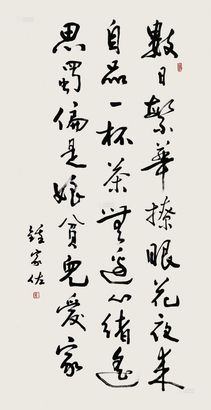 數日繁華撩眼花夜来
自品一杯茶無邊心緒遙
思蜀偏是娘貧兒愛家
鍾家佐